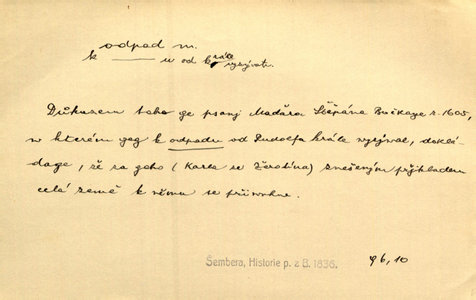 odpad m.
k ——— u od krále vyzývati.
Důkazem toho ge psanj Maďara Štěpána Bočkaye z. 1605,
w kterém geg k odpadu od Rudolfa krále vyzýval, doklá-
dage, že za geho (Karla ze Žerotína) znešeným přjkladem
celá země k němu se přiwrhne.
Šembera, Historie p. z B. 1836.
96, 10